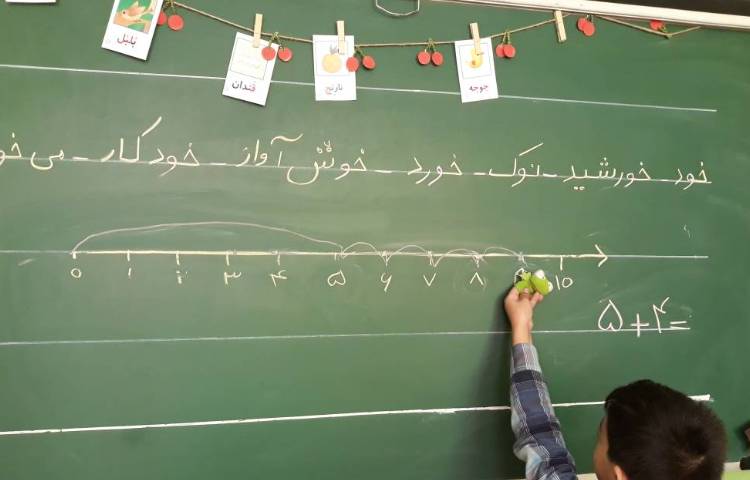 بلبل قندان نارنج جوجه
خود - خورشید - نوک - خورد - خوش آواز - خودکار - می خو
۰ ۱ ۲ ۳ ۴ ۵ ۶ ۷ ۸ ۱۰
۵+۴=